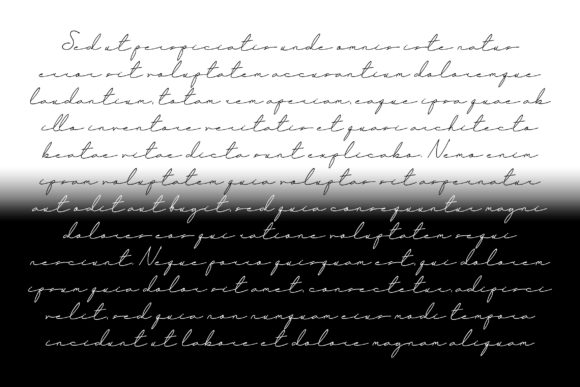 Sed ut perspiciatis unde omnis iste natus
error sit voluptatem accusantium doloremque
laudantium, totam rem aperiam, eaque ipsa quae ab
illo inventore veritatis et quasi architecto
beatae vitae dicta sunt explicabo. Nemo enim
ipsam voluptatem quia voluptas sit aspernatur
aut odit aut fugit, sed quia consequuntur magni
dolores eos qui ratione voluptatem sequi
nesciunt. Neque porro quisquam est, qui dolorem
ipsum quia dolor sit amet, consectetur, adipisci
velit, sed quia non numquam eius modi tempora
incidunt ut labore et dolore magnam aliquam